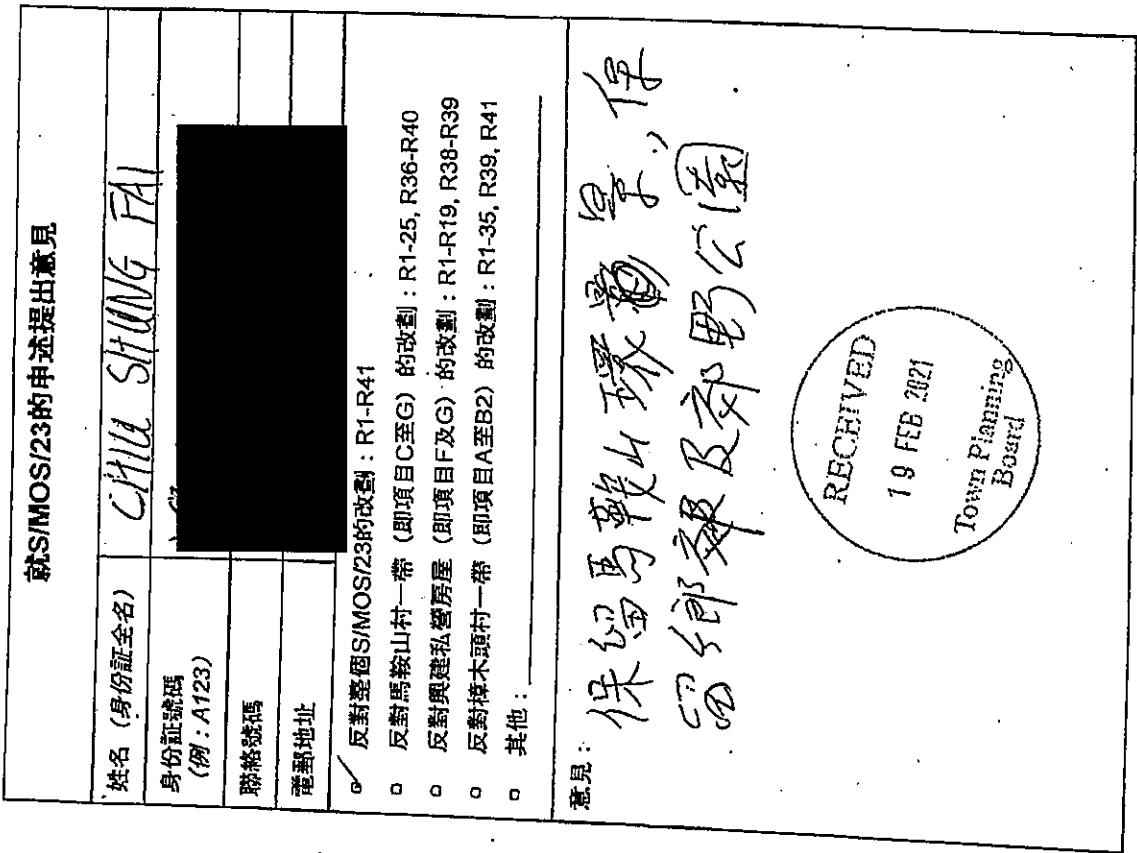 就S/MOS/23的申述提出意見
姓名（身份証全名） CHIU SHUNG FAI
身份証號碼
（例：A123）
聯絡號碼
電郵地址
反對整個S/MOS/23的改劃：R1-R41
反對馬鞍山村一帶（即項目C至G）的改劃：R1-25, R36-R40
反對興建私營房屋（即項目F及G）的改劃：R1-R19, R38-R39
反對樟木頭村一帶（即項目A至B2）的改劃：R1-35, R39, R41
其他：
意見：
保留馬鞍山環 景，保
留 及郊野公園
RECEIVED
19 FEB 2021
Town Planning
Board